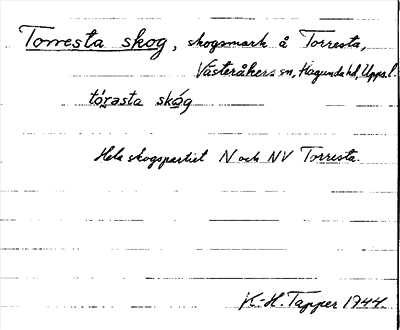 Torresta skog, skogsmark å Torresta,
Västeråkers sn, Hagunda hd, Upps. l.
tórasta skóg
Hela skogspartiet N och NV Torresta.
K.-H. Tapper 1944.